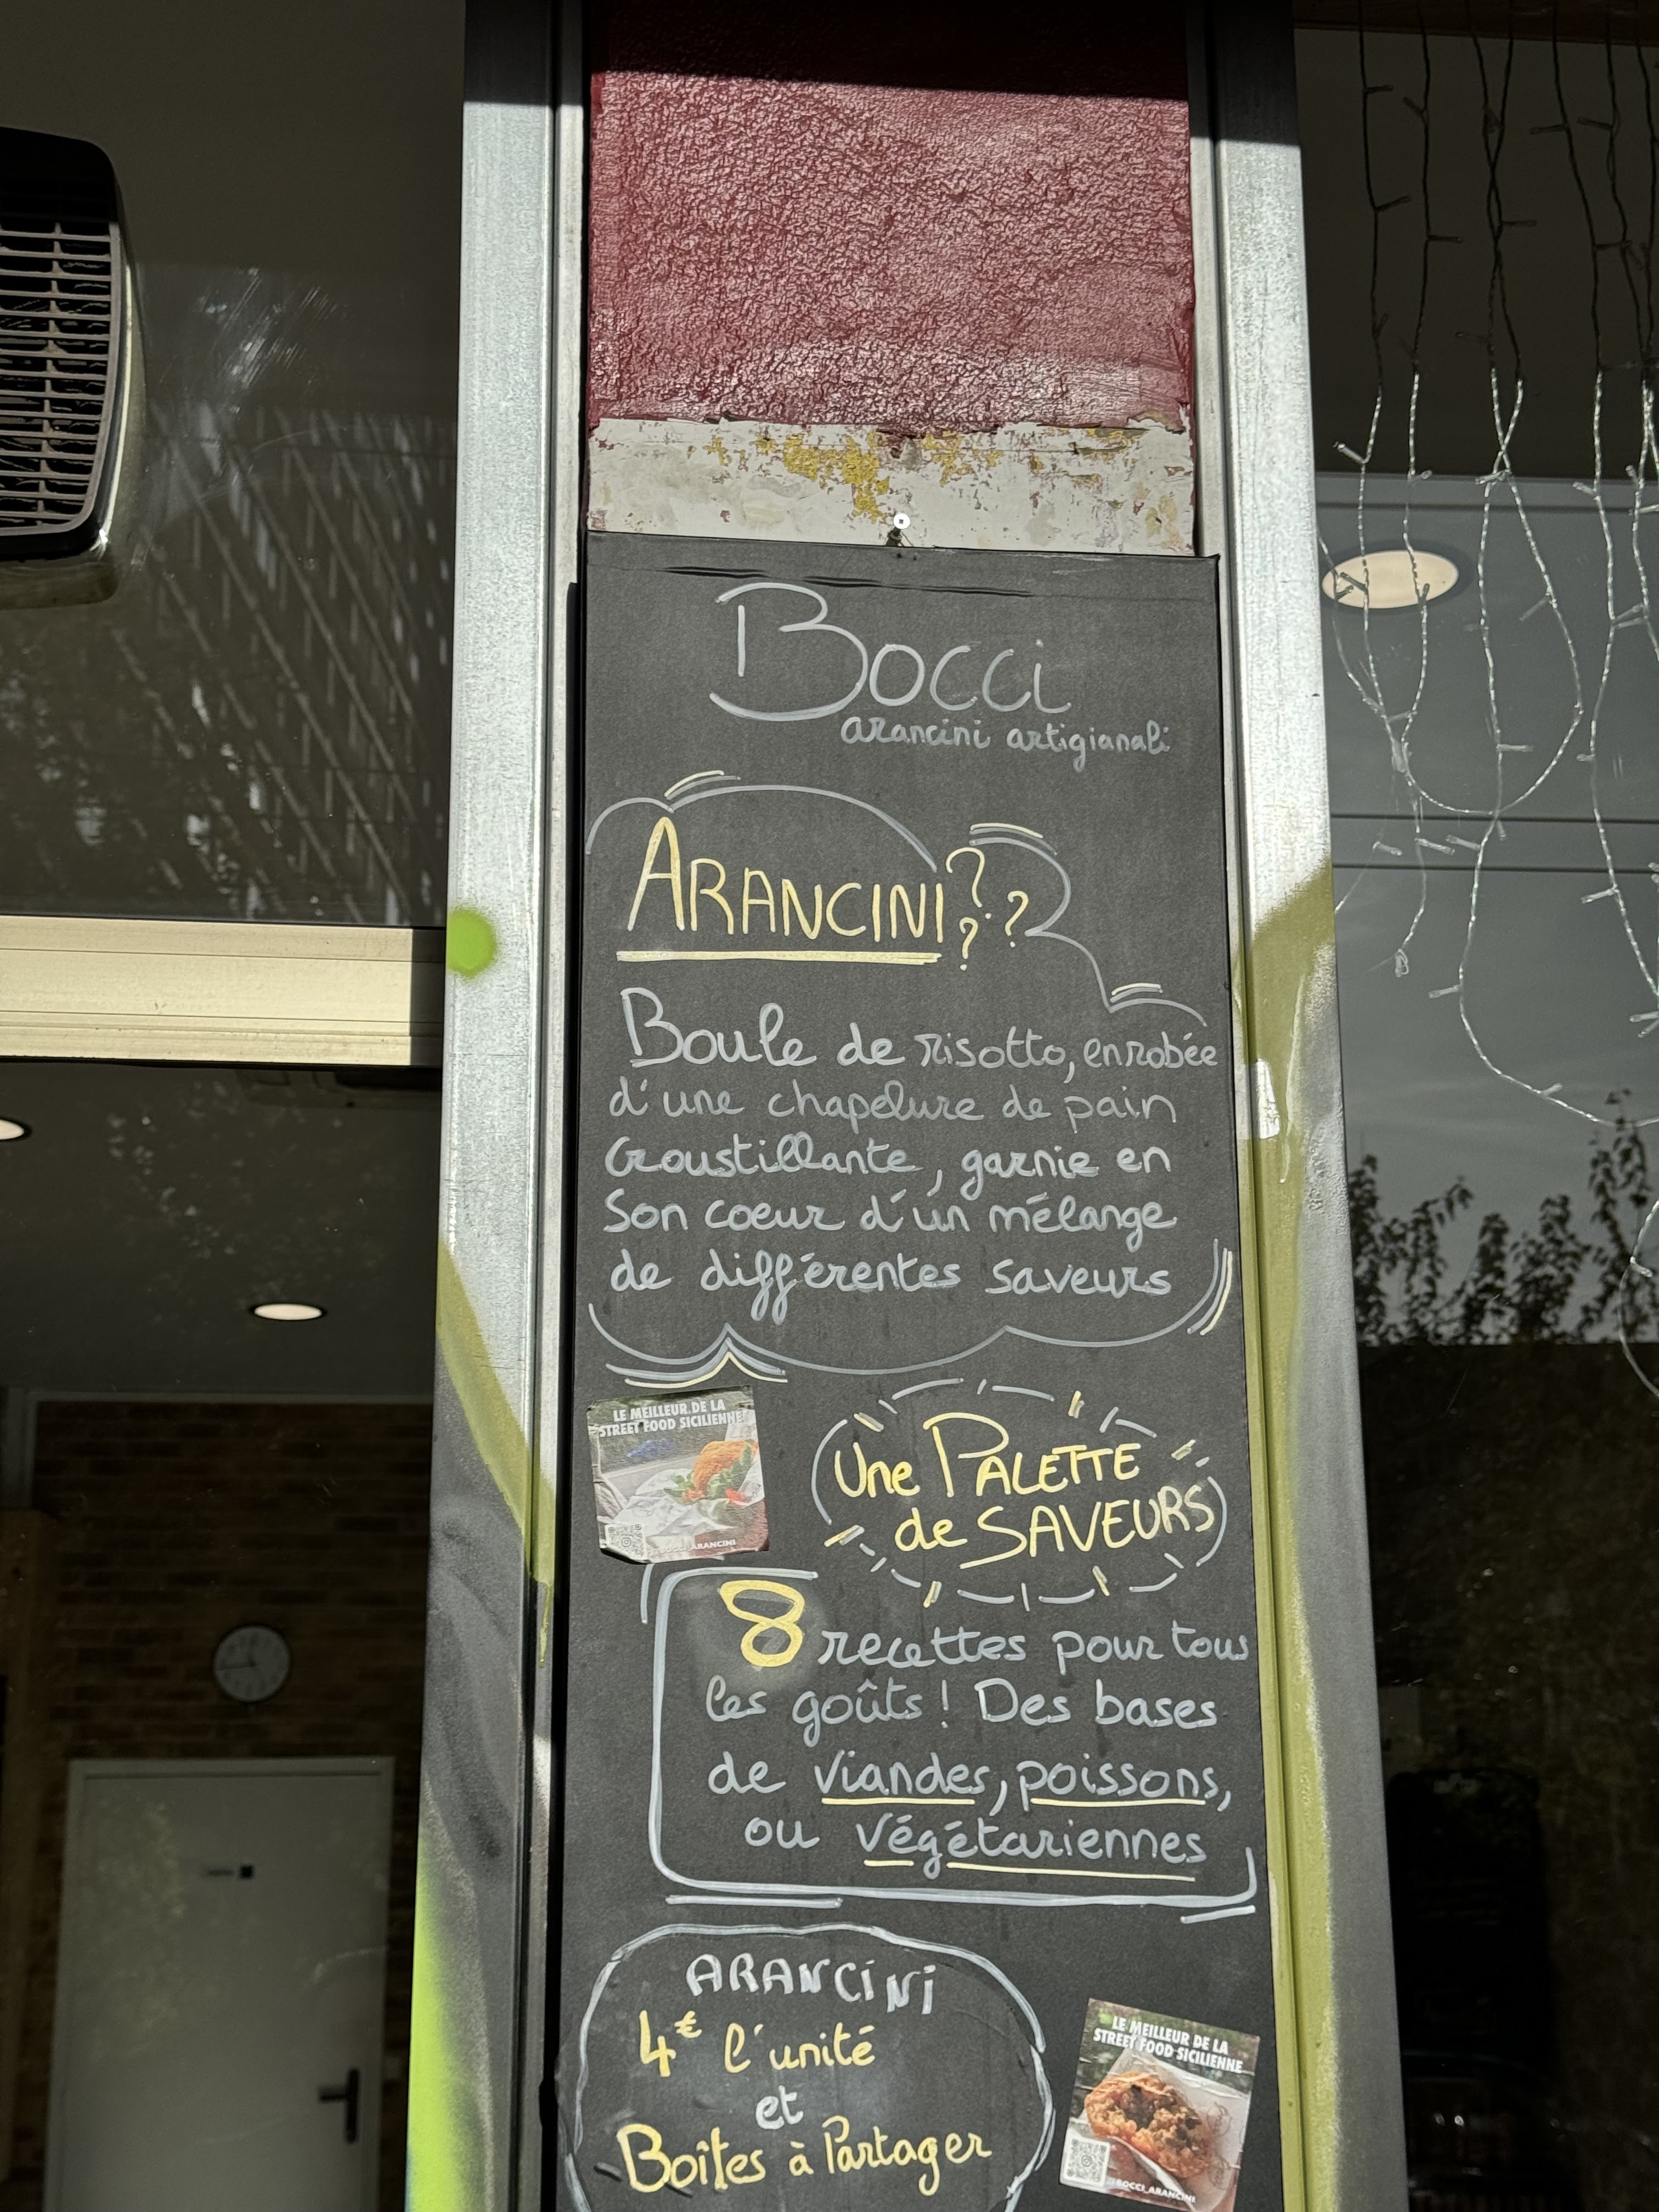 Bocci
arancini artigianali
ARANCINI???
Boule de risotto, enrobée
d'une chapelure de pain
croustillante, garnie en
son coeur d'un mélange
de différentes saveurs
LE MEILLEUR DE LA
STREET FOOD SICILIENNE
BOCCI_ARANCINI
Une PALETTE
de SAVEURS
8 recettes pour tous
les goûts ! Des bases
de viandes, poissons,
ou végétariennes
ARANCINI
4€ l'unité
et
Boîtes à Partager
LE MEILLEUR DE LA
STREET FOOD SICILIENNE
@BOCCI_ARANCINI